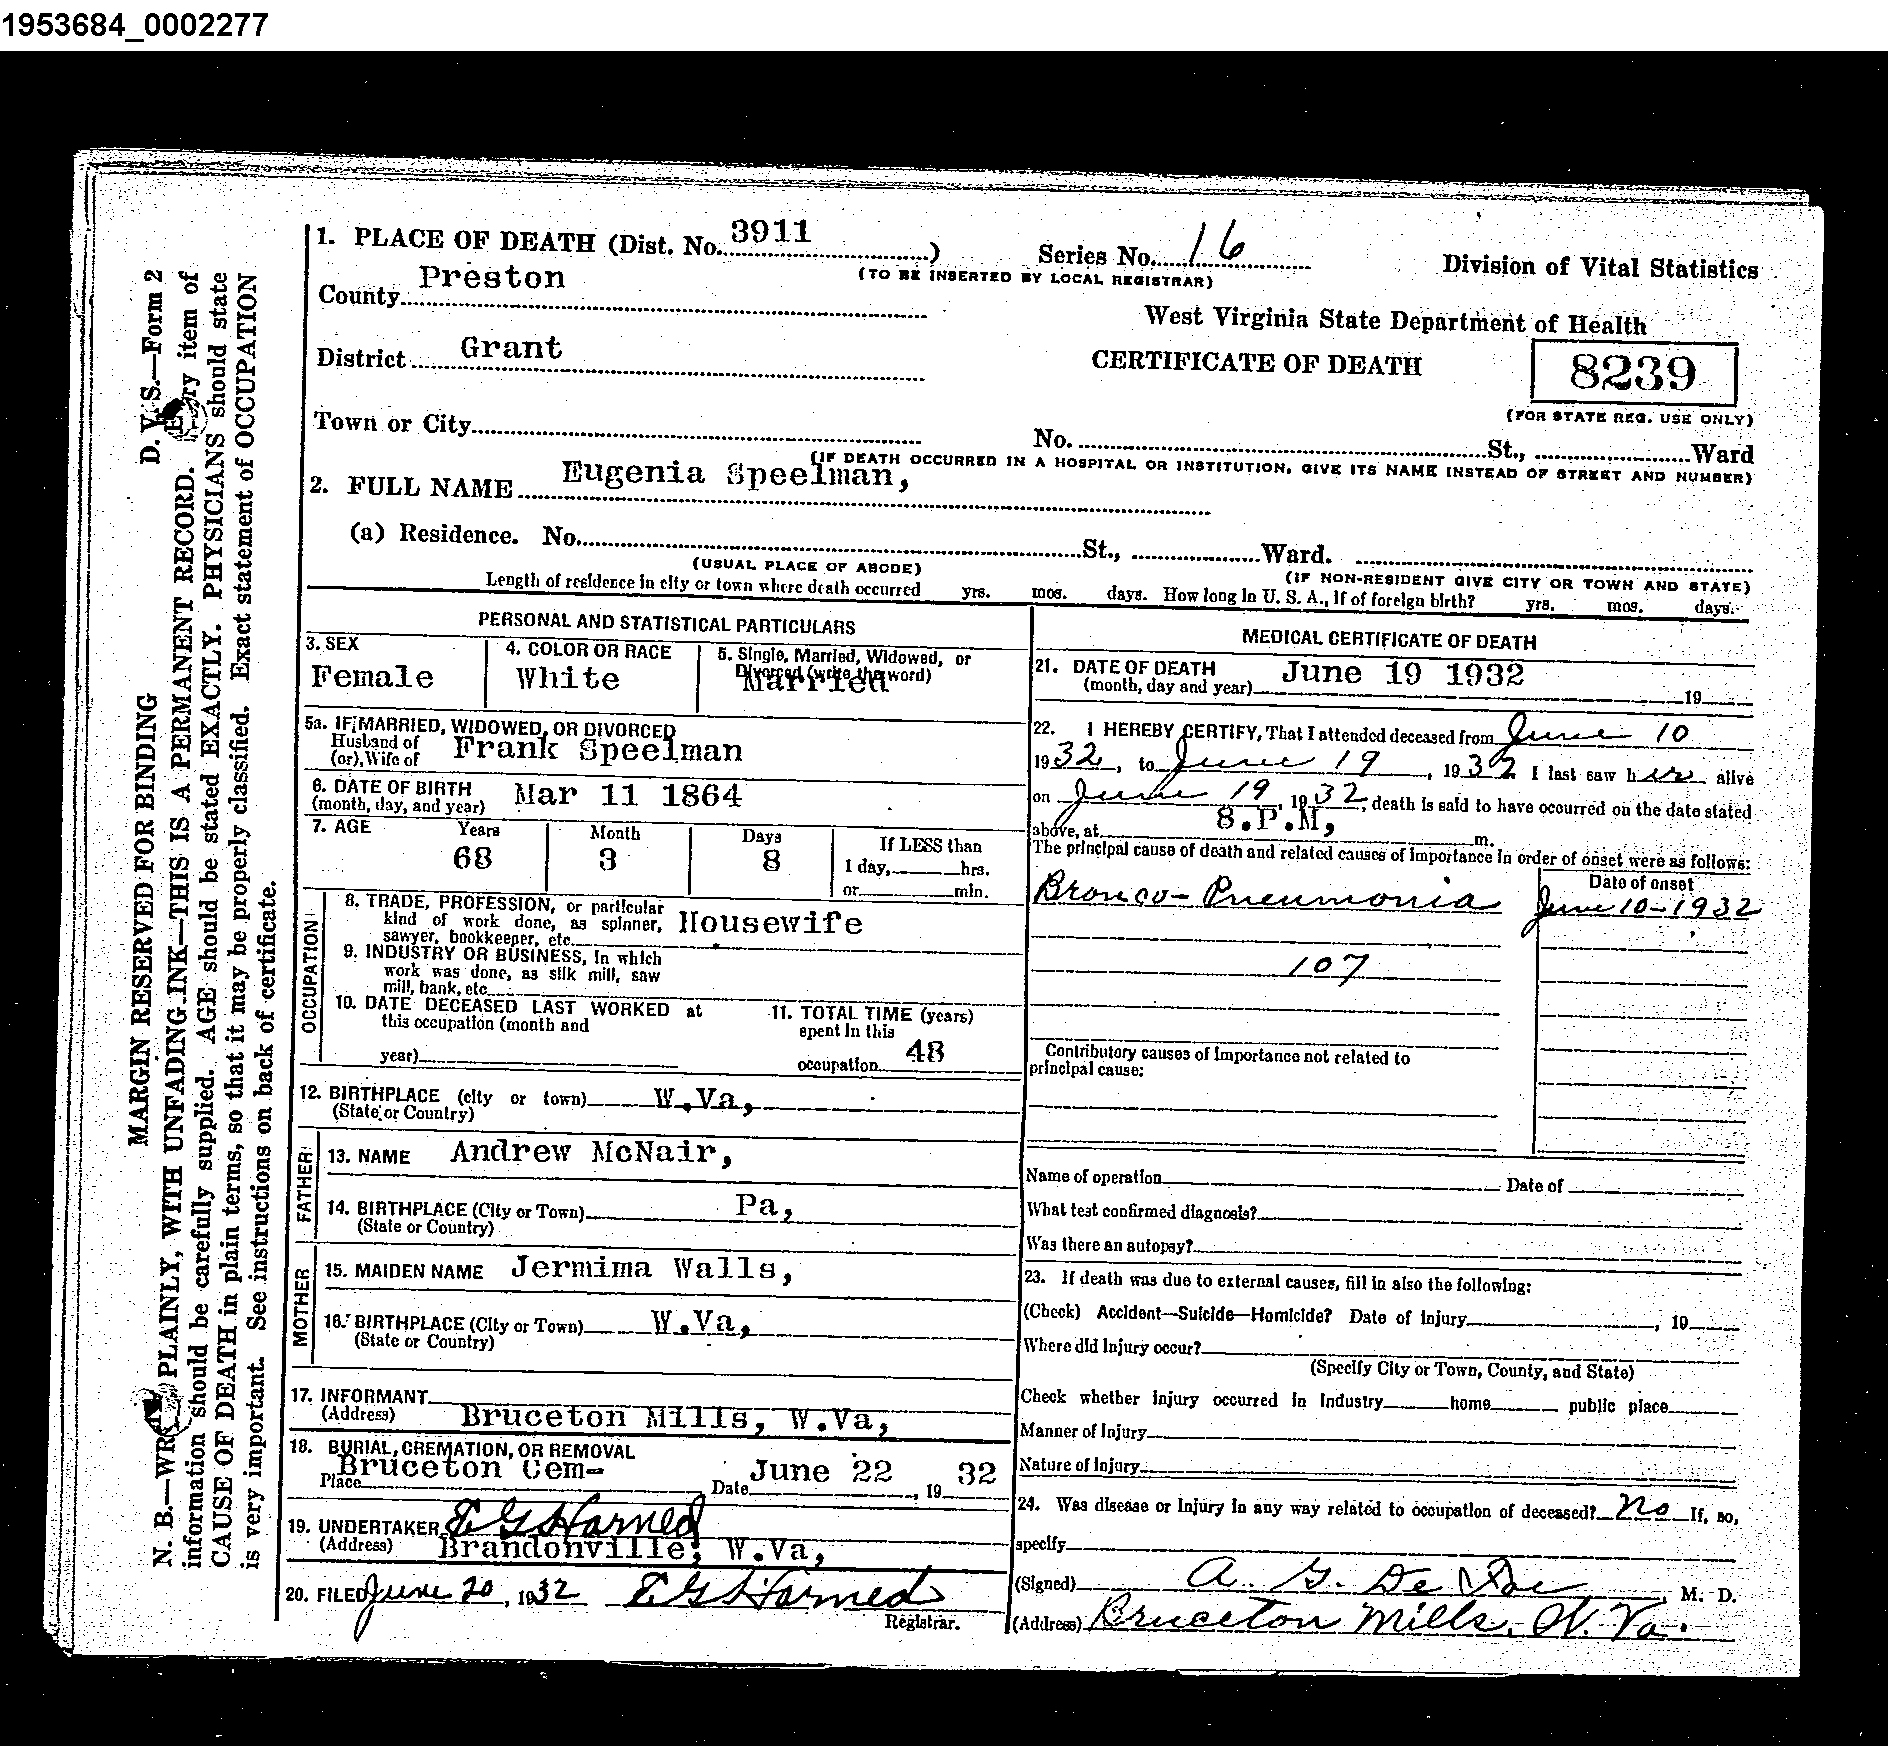 1953684_0002277
MARGIN RESERVED FOR BINDING D. V. S.—Form 2
N. B.—WRITE PLAINLY, WITH UNFADING INK—THIS IS A PERMANENT RECORD. Every item of
information should be carefully supplied. AGE should be stated EXACTLY. PHYSICIANS should state
CAUSE OF DEATH in plain terms, so that it may be properly classified. Exact statement of OCCUPATION
is very important. See instructions on back of certificate.
1. PLACE OF DEATH (Dist. No. 3911 ) Series No. 16
(TO BE INSERTED BY LOCAL REGISTRAR)
Division of Vital Statistics
County Preston
West Virginia State Department of Health
District Grant
CERTIFICATE OF DEATH
8239
(FOR STATE REG. USE ONLY)
Town or City No. St., Ward
(IF DEATH OCCURRED IN A HOSPITAL OR INSTITUTION, GIVE ITS NAME INSTEAD OF STREET AND NUMBER)
2. FULL NAME Eugenia Speelman,
(a) Residence. No. St., Ward.
(USUAL PLACE OF ABODE) (IF NON-RESIDENT GIVE CITY OR TOWN AND STATE)
Length of residence in city or town where death occurred yrs. mos. days. How long in U. S. A., if of foreign birth? yrs. mos. days.
PERSONAL AND STATISTICAL PARTICULARS
3. SEX 4. COLOR OR RACE 5. Single, Married, Widowed, or
Divorced (write the word)
Female White Married
5a. IF MARRIED, WIDOWED, OR DIVORCED
Husband of
(or) Wife of Frank Speelman
6. DATE OF BIRTH
(month, day, and year) Mar 11 1864
7. AGE Years Month Days If LESS than
68 3 8 1 day, hrs.
or min.
OCCUPATION
8. TRADE, PROFESSION, or particular
kind of work done, as spinner,
sawyer, bookkeeper, etc. Housewife
9. INDUSTRY OR BUSINESS, in which
work was done, as silk mill, saw
mill, bank, etc.
10. DATE DECEASED LAST WORKED at
this occupation (month and
year)
11. TOTAL TIME (years)
spent in this
occupation 48
12. BIRTHPLACE (city or town) W.Va,
(State or Country)
FATHER
13. NAME Andrew McNair,
14. BIRTHPLACE (City or Town) Pa,
(State or Country)
MOTHER
15. MAIDEN NAME Jermima Walls,
16. BIRTHPLACE (City or Town) W.Va,
(State or Country)
17. INFORMANT
(Address) Bruceton Mills, W.Va,
18. BURIAL, CREMATION, OR REMOVAL
Place Bruceton Cem- Date June 22, 19 32
19. UNDERTAKER E G Harned
(Address) Brandonville, W.Va,
20. FILED June 20, 1932 E G Harned
Registrar.
MEDICAL CERTIFICATE OF DEATH
21. DATE OF DEATH
(month, day and year) June 19 1932 19
22. I HEREBY CERTIFY, That I attended deceased from June 10
1932, to June 19, 1932 I last saw her alive
on June 19, 1932, death is said to have occurred on the date stated
above, at 8.P.M, m.
The principal cause of death and related causes of importance in order of onset were as follows:
Date of onset
Bronco-Pneumonia June 10-1932
107
Contributory causes of importance not related to
principal cause:
Name of operation Date of
What test confirmed diagnosis?
Was there an autopsy?
23. If death was due to external causes, fill in also the following:
(Check) Accident—Suicide—Homicide? Date of injury , 19
Where did injury occur?
(Specify City or Town, County, and State)
Check whether injury occurred in industry home public place
Manner of injury
Nature of injury
24. Was disease or injury in any way related to occupation of deceased? No If, so,
specify
(Signed) A. G. De , M. D.
(Address) Bruceton Mills, W. Va.